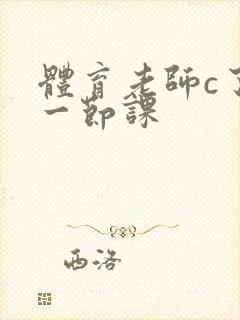 體育老師c了
一節課
西洛